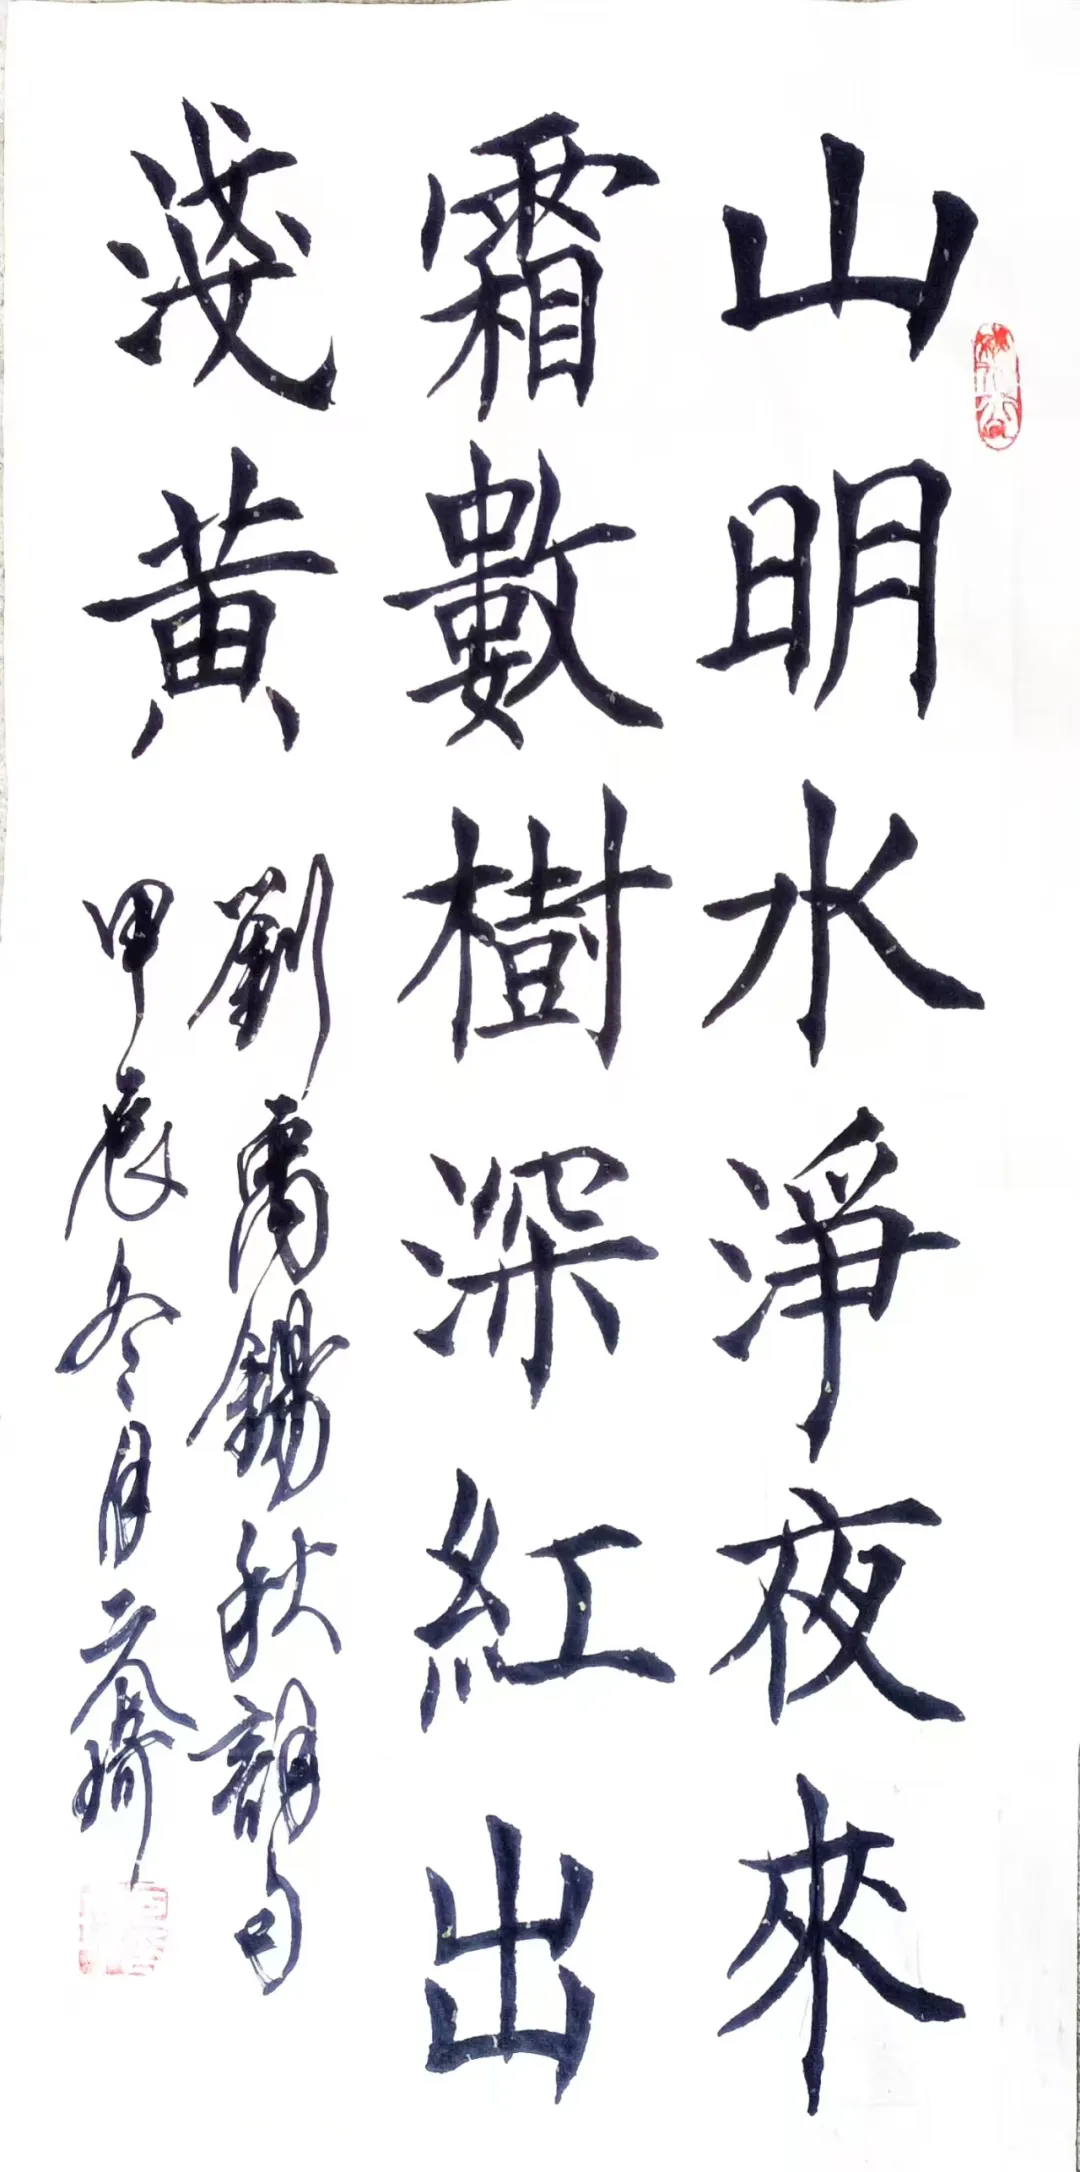 山明水淨夜來
霜數樹深紅出
淺黃
劉禹錫秋詞句
甲辰冬月